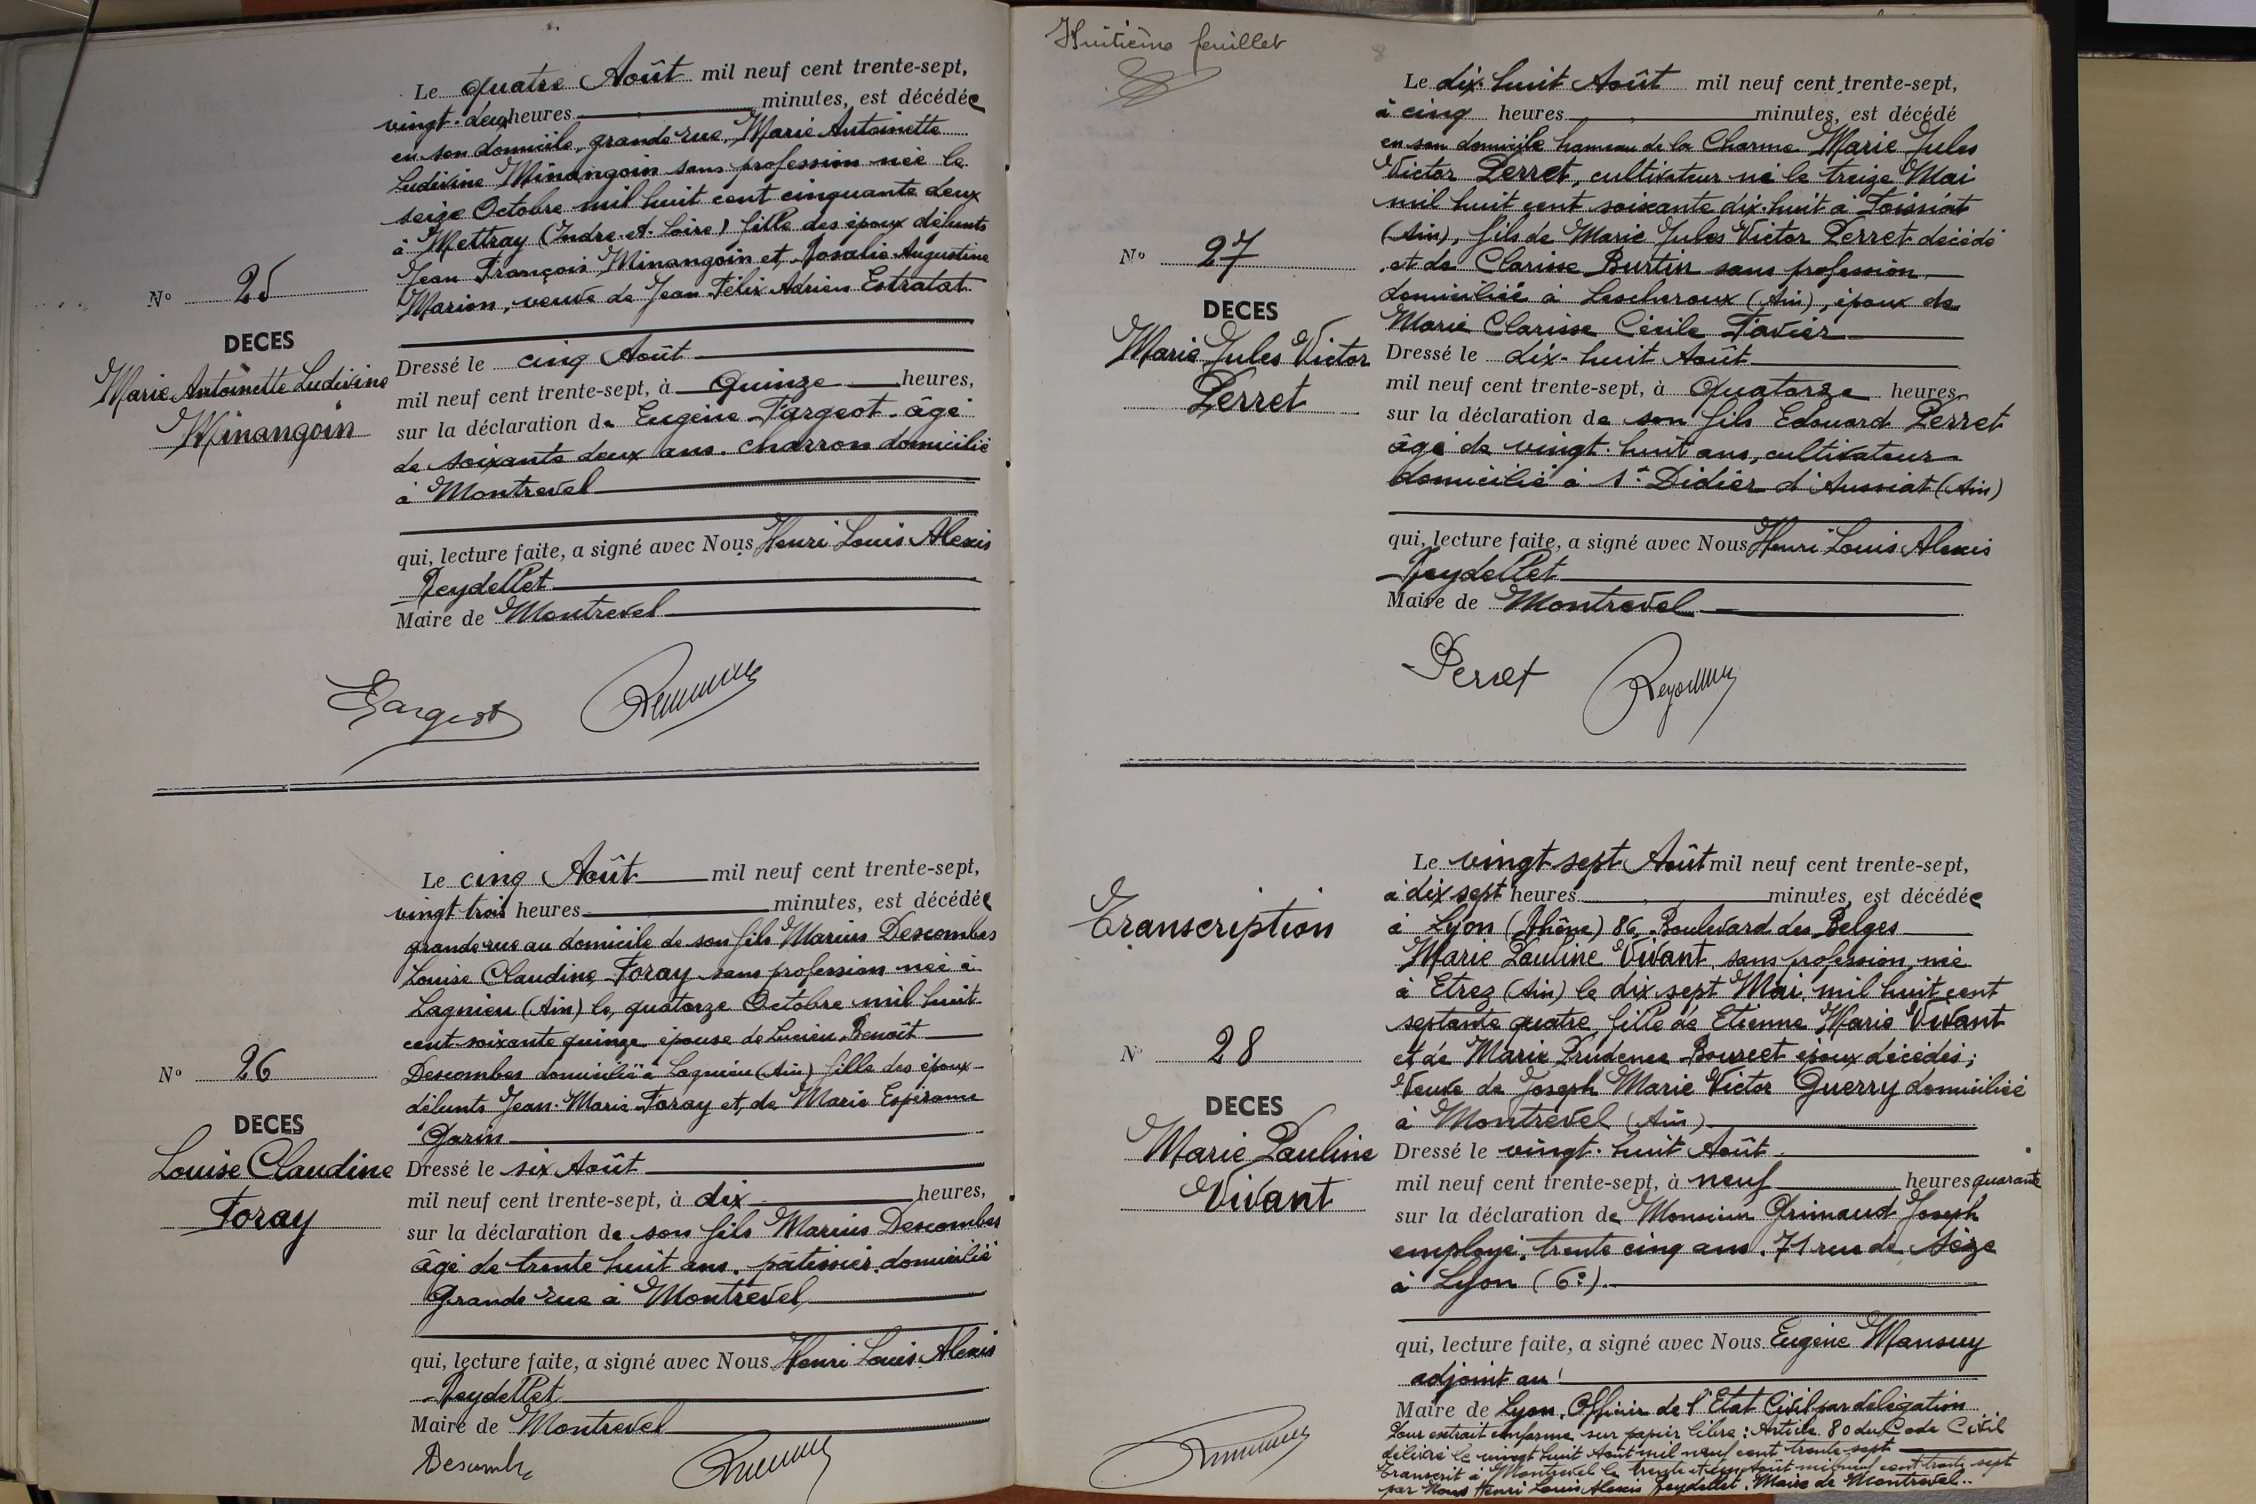 Le quatre Août mil neuf cent trente-sept,
vingt-deux heures minutes, est décédée
en son domicile, grande rue, Marie Antoinette
Ludivine Minangoin sans profession née le
seize Octobre mil huit cent cinquante deux
à Mettray (Indre-et-Loire) fille des époux défunts
Jean François Minangoin et Rosalie Augustine
Marion, veuve de Jean Félix Adrien Estratat
N° 25
DECES
Marie Antoinette Ludivine
Minangoin
Dressé le cinq Août
mil neuf cent trente-sept, à Quinze heures,
sur la déclaration de Eugène Fargeot âgé
de soixante deux ans. charron domicilié
à Montrevel
qui, lecture faite, a signé avec Nous Henri Louis Alexis
Reydellet
Maire de Montrevel
EFargeot
Le cinq Août mil neuf cent trente-sept,
vingt trois heures minutes, est décédée
grande rue au domicile de son fils Marius Descombes
Louise Claudine Foray sans profession née à
Lagnieu (Ain) le quatorze Octobre mil huit
cent soixante quinze épouse de Lucien Benoît
Descombes domiciliée à Lagnieu (Ain) fille des époux
défunts Jean-Marie Foray et de Marie Espérance
Garin
N° 26
DECES
Louise Claudine
Foray
Dressé le six Août
mil neuf cent trente-sept, à dix heures,
sur la déclaration de son fils Marius Descombes
âgé de trente huit ans. pâtissier, domicilié
Grande rue à Montrevel
qui, lecture faite, a signé avec Nous Henri Louis Alexis
Reydellet
Maire de Montrevel
Descombes
Huitième feuillet
8
Le dix-huit Août mil neuf cent trente-sept,
à cinq heures minutes, est décédé
en son domicile hameau de la Charme Marie Jules
Victor Perret, cultivateur né le treize Mai
mil huit cent soixante dix-huit à Foissiat
(Ain), fils de Marie Jules Victor Perret décédé
et de Clarisse Burtin sans profession
domiciliée à Lescheroux (Ain), époux de
Marie Clarisse Cécile Favier
N° 27
DECES
Marie Jules Victor
Perret
Dressé le dix-huit Août
mil neuf cent trente-sept, à Quatorze heures,
sur la déclaration de son fils Edouard Perret
âgé de vingt-huit ans, cultivateur
domicilié à St Didier d'Aussiat (Ain)
qui, lecture faite, a signé avec Nous Henri Louis Alexis
Reydellet
Maire de Montrevel
Perret
Le vingt sept Août mil neuf cent trente-sept,
à dix sept heures minutes, est décédée
à Lyon (Rhône) 86, Boulevard des Belges
Marie Pauline Vivant sans profession, née
à Etrez (Ain) le dix sept Mai mil huit cent
septante quatre, fille de Etienne Marie Vivant
et de Marie Prudence Bourcet époux décédés;
Veuve de Joseph Marie Victor Guerry domiciliée
à Montrevel (Ain)
Transcription
N° 28
DECES
Marie Pauline
Vivant
Dressé le vingt-huit Août
mil neuf cent trente-sept, à neuf heures quarante
sur la déclaration de Monsieur Grimaud Joseph
employé, trente cinq ans. 71 rue de Sèze
à Lyon (6e).
qui, lecture faite, a signé avec Nous Eugène Mansuy
adjoint au
Maire de Lyon, Officier de l'Etat Civil par délégation
Pour extrait conforme sur papier libre: Article 80 du Code Civil
délivré le vingt huit Août mil neuf cent trente sept
Transcrit à Montrevel le trente et un Août mil neuf cent trente sept
par Nous Henri Louis Alexis Reydellet, Maire de Montrevel..